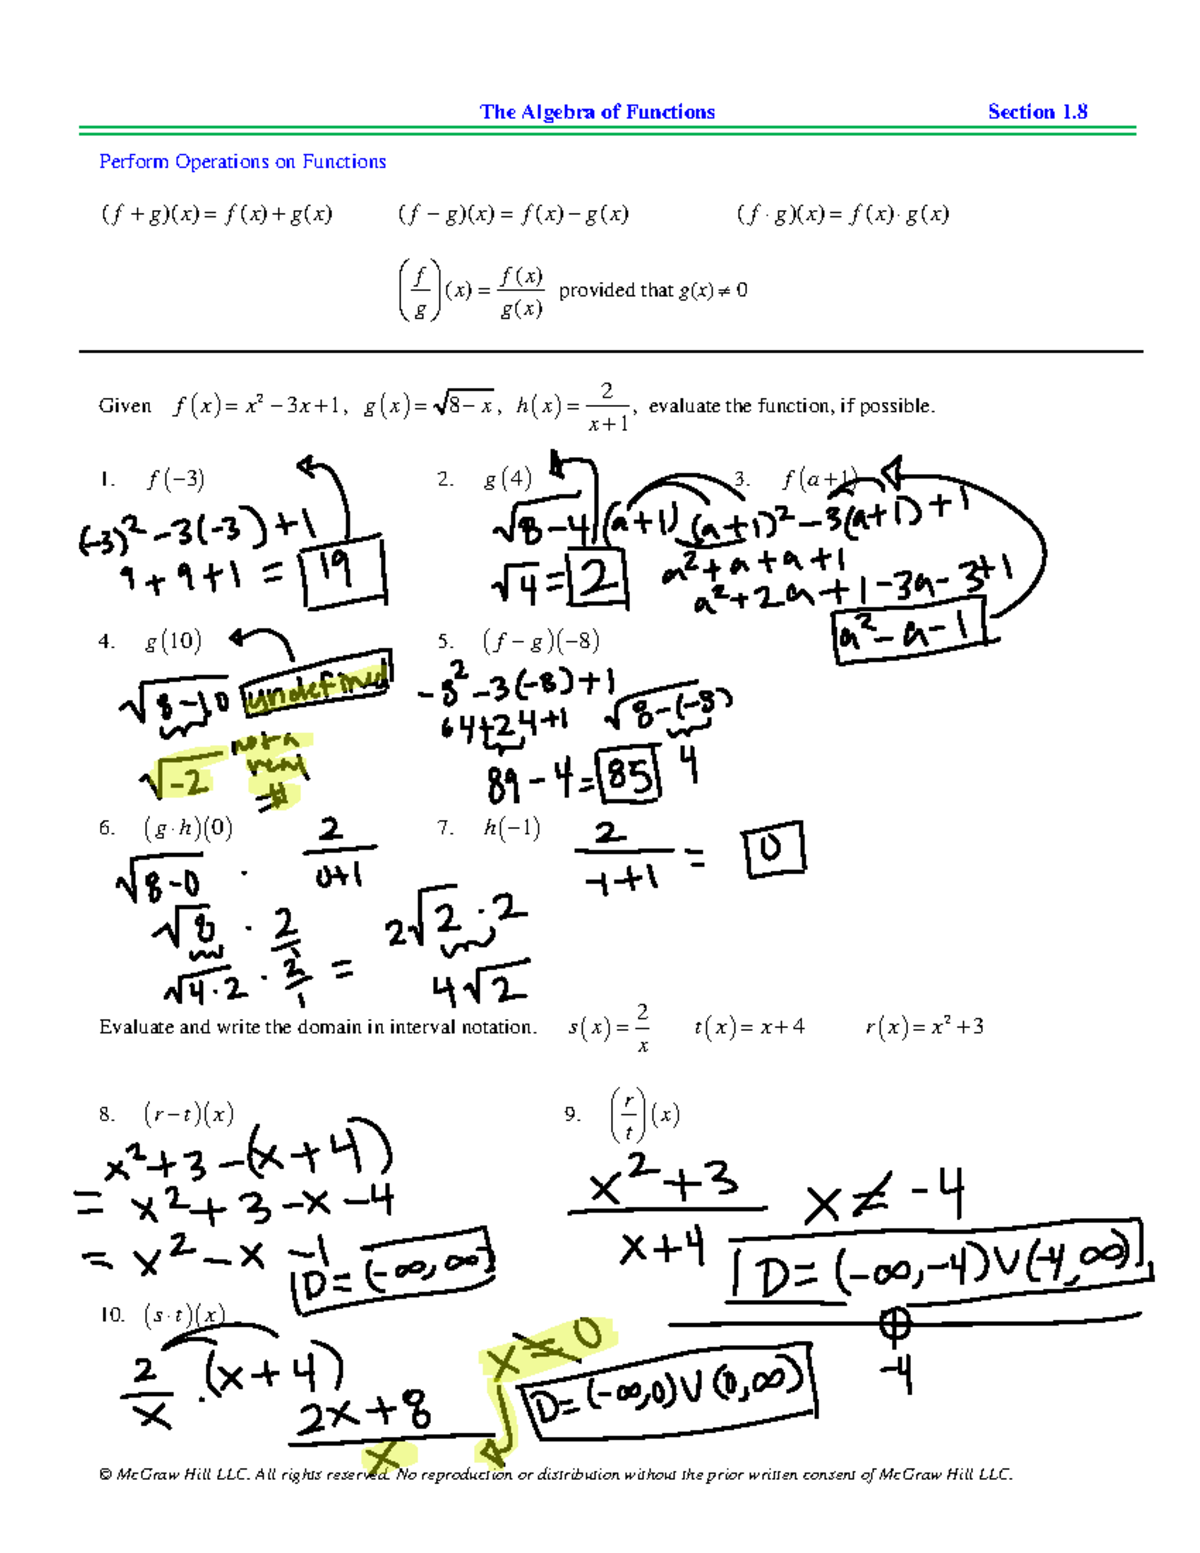 The Algebra of Functions Section 1.8
Perform Operations on Functions
(f + g)(x) = f(x) + g(x) (f − g)(x) = f(x) − g(x) (f · g)(x) = f(x) · g(x)
(f/g)(x) = f(x)/g(x) provided that g(x) ≠ 0
Given f(x) = x² − 3x + 1, g(x) = √(8 − x), h(x) = 2/(x + 1), evaluate the function, if possible.
1. f(−3) 2. g(4) 3. f(a + 1)
(-3)² - 3(-3) + 1
9 + 9 + 1 = 19
√(8-4)
√4 = 2
(a+1) (a+1)² - 3(a+1) + 1
a² + a + a + 1
a² + 2a + 1 - 3a - 3 + 1
a² - a - 1
4. g(10) 5. (f − g)(−8)
√(8-10) undefined
√-2 not a
real
#
-8² - 3(-8) + 1
64 + 24 + 1 √(8-(-8))
89 - 4 = 85 4
6. (g · h)(0) 7. h(−1)
√(8-0) · 2/(0+1)
√8 · 2/1
√(4·2) · 2/1 =
2√2 · 2
4√2
2/(-1+1) = 0
Evaluate and write the domain in interval notation. s(x) = 2/x t(x) = x + 4 r(x) = x² + 3
8. (r − t)(x) 9. (r/t)(x)
x² + 3 - (x + 4)
= x² + 3 - x - 4
= x² - x - 1
D = (-∞, ∞)
(x² + 3)/(x + 4) x ≠ -4
D = (-∞, -4) ∪ (-4, ∞)
-4
10. (s · t)(x)
2/x · (x + 4)
(2x + 8)/x
x ≠ 0
D = (-∞, 0) ∪ (0, ∞)
© McGraw Hill LLC. All rights reserved. No reproduction or distribution without the prior written consent of McGraw Hill LLC.